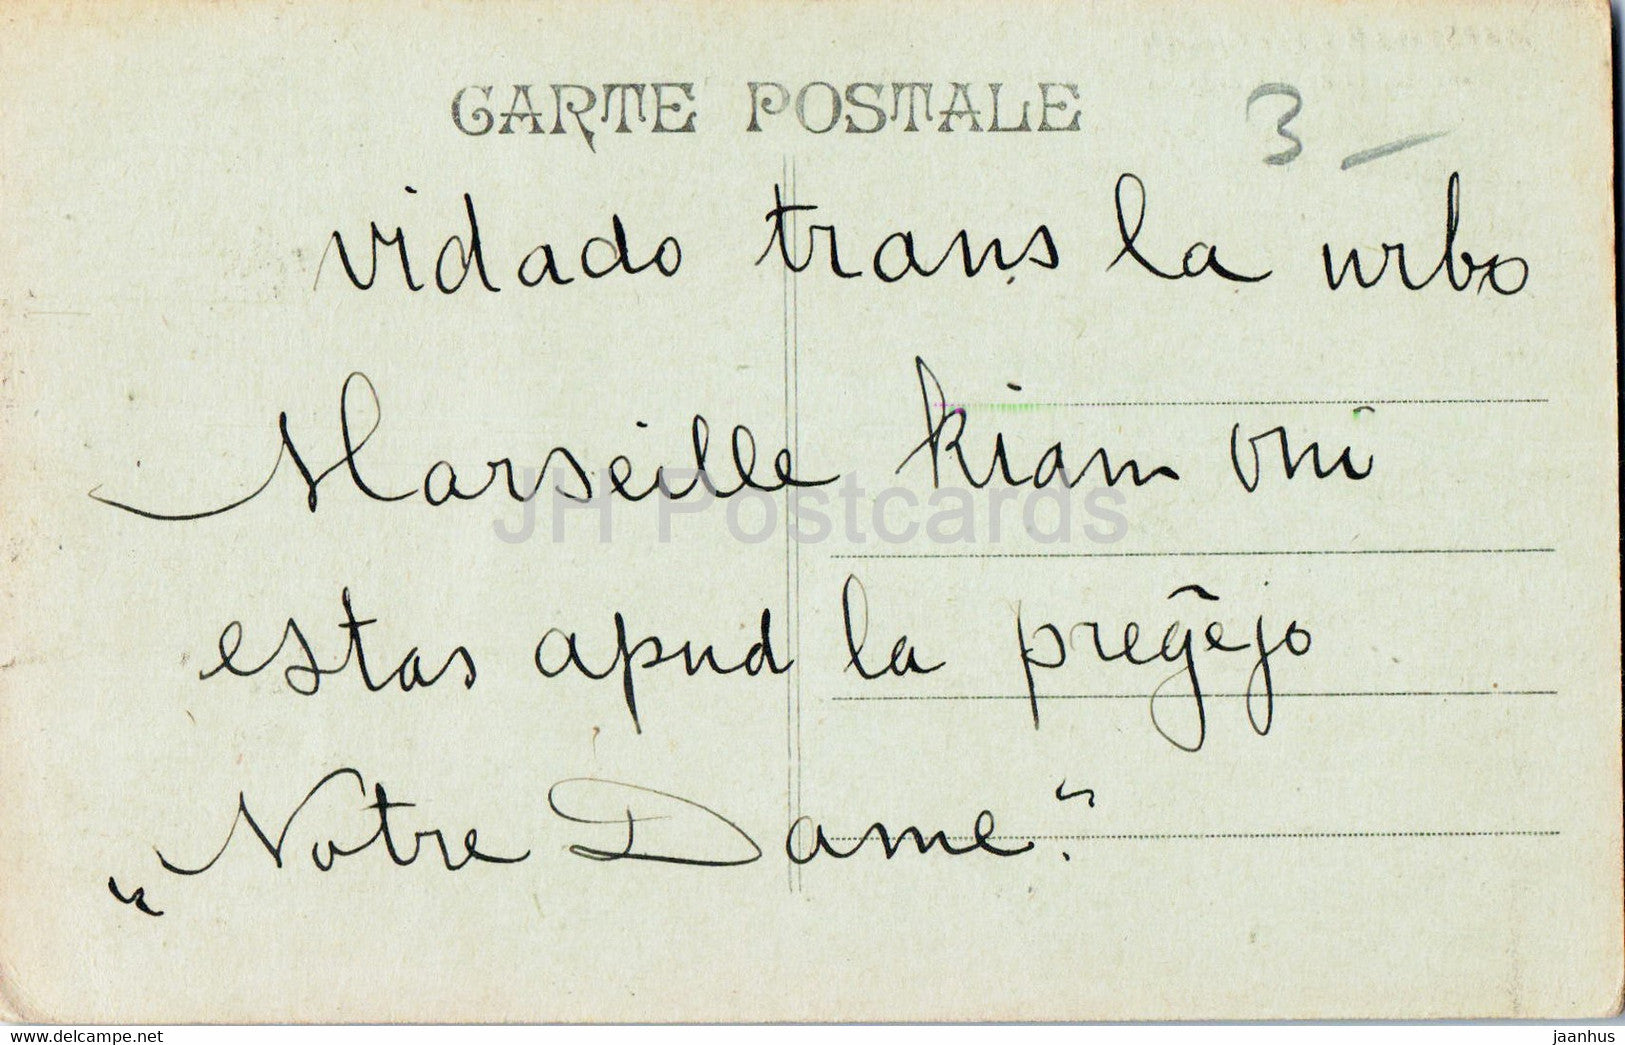 CARTE POSTALE
3 —
vidado trans la urbo
Marseille kiam oni
estas apud la preĝejo
„Notre Dame“.
JH Postcards
delcampe.net
jaanhus